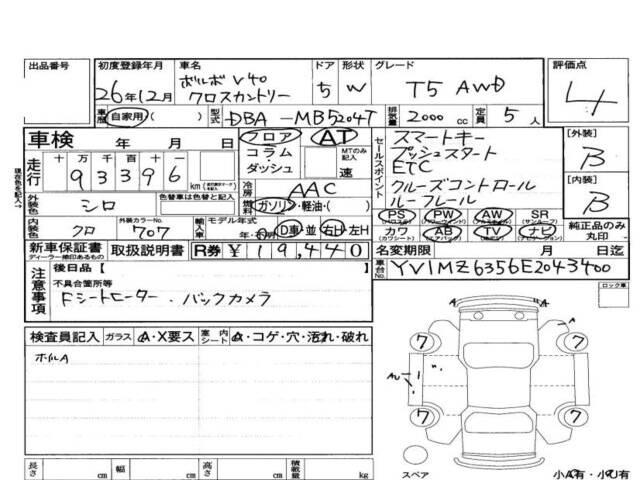 出品番号
初度登録年月
26年12月
車名
ボルボ V40
クロスカントリー
ドア 形状
5 W
グレード
T5 AWD
評価点
4
車歴 自家用 ( )
型式 DBA-MB5204T
排気量 2000 cc
定員 5 人
車検 年 月 日
走行 十 万 千 百 十 一
93396 km
フロア
コラム
ダッシュ
AT
MTのみ記入
速
セールスポイント
スマートキー
プッシュスタート
ETC
クルーズコントロール
ルーフレール
[外装]
B
[内装]
B
現在色を記入→
外装色 シロ
色替車は色替と記入
冷房 AAC
燃料 ガソリン・軽油・( )
内装色 クロ
外装カラーNo. 707
輸入車
モデル年式
年 D車 並 右H・左H
PS PW AW SR
カワ AB TV ナビ
純正品のみ
丸印
新車保証書
ディーラー捺印あるもの
取扱説明書
R券 ¥ 19,440
名変期限 月 日迄
注意事項
後日品【
不具合箇所等
Fシートヒーター・バックカメラ
車台No. YV1MZ6356E2043400
ロック車
検査員記入 ガラス A・X要ス
室内シート A・コゲ・穴・汚れ・破れ
ホイルA
A
7 7
7 7
スペア
小A有・小U有
長さ cm 幅 cm 高さ cm 積載量 kg